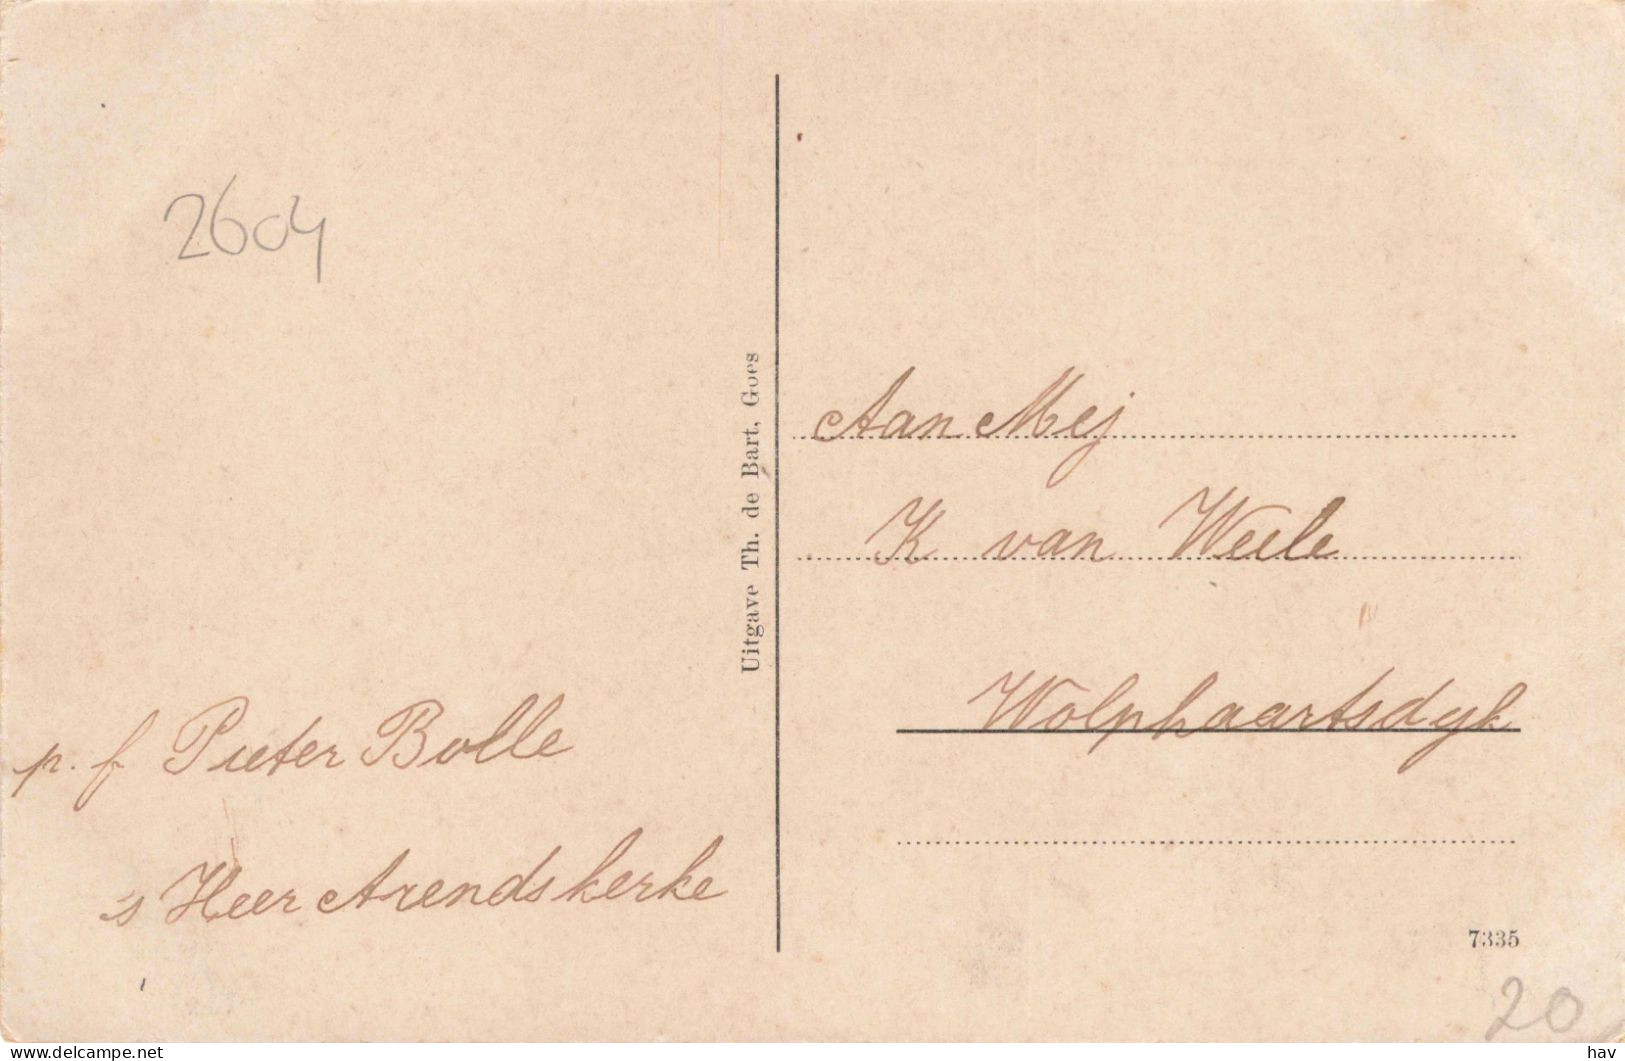 2604
p. f Pieter Bolle
's Heer Arendskerke
Uitgave Th. de Bart, Goes
Aan Mej
K van Weele
Wolphaartsdyk
7335
20
www.delcampe.net
hav